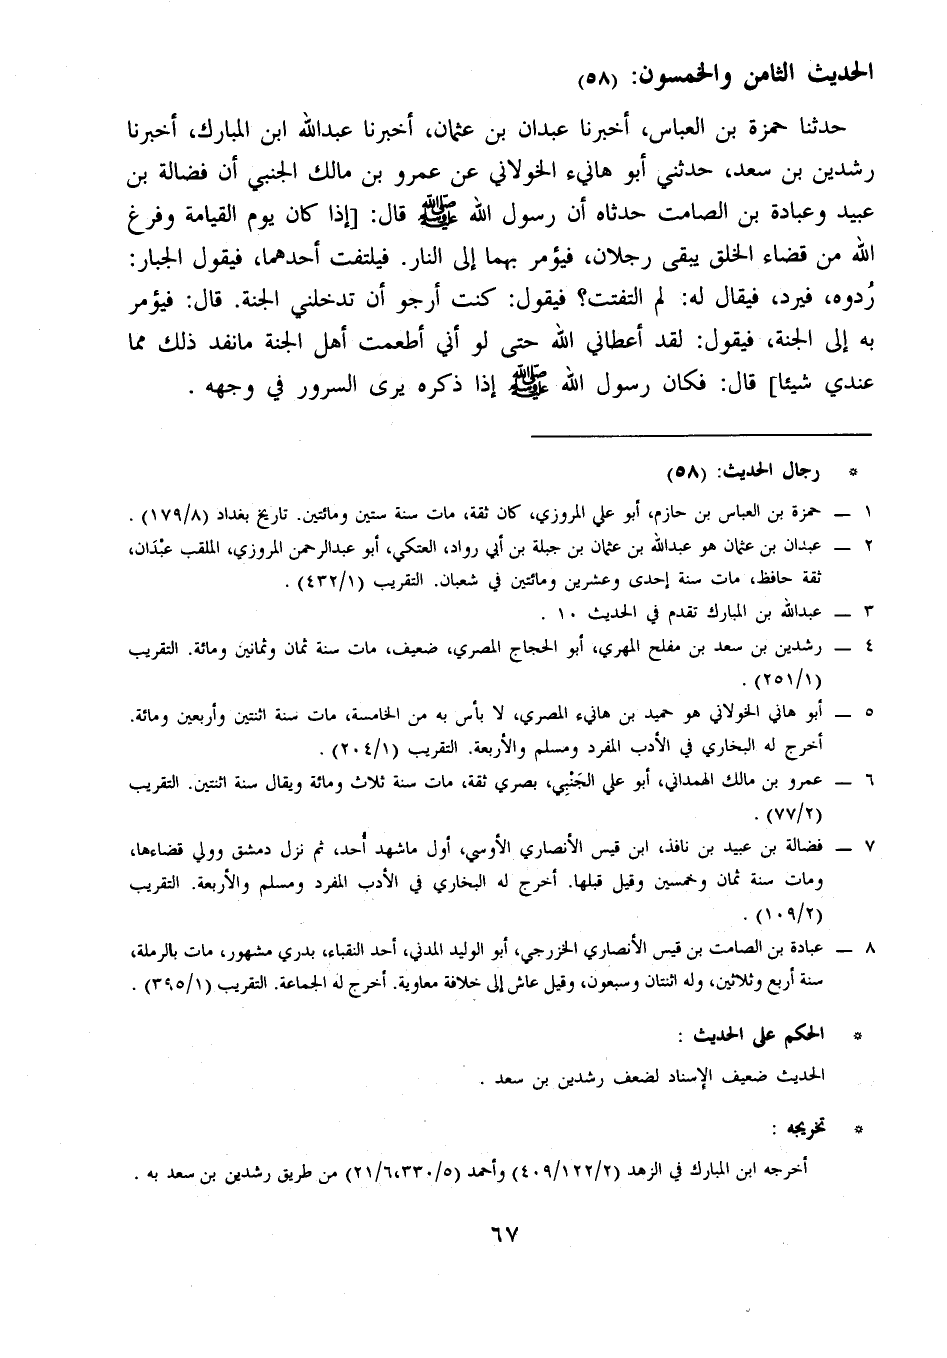 الحديث الثامن والخمسون: (٥٨)
حدثنا حمزة بن العباس، أخبرنا عبدان بن عثمان، أخبرنا عبدالله ابن المبارك، أخبرنا
رشدين بن سعد، حدثني أبو هانيء الخولاني عن عمرو بن مالك الجنبي أن فضالة بن
عبيد وعبادة بن الصامت حدثاه أن رسول الله ﷺ قال: [إذا كان يوم القيامة وفرغ
الله من قضاء الخلق يبقى رجلان، فيؤمر بهما إلى النار. فيلتفت أحدهما، فيقول الجبار:
رُدوه، فيرد، فيقال له: لم التفتت؟ فيقول: كنت أرجو أن تدخلني الجنة. قال: فيؤمر
به إلى الجنة، فيقول: لقد أعطاني الله حتى لو أني أطعمت أهل الجنة مانفد ذلك مما
عندي شيئا] قال: فكان رسول الله ﷺ إذا ذكره يرى السرور في وجهه .
* رجال الحديث: (٥٨)
١ — حمزة بن العباس بن حازم، أبو علي المروزي، كان ثقة، مات سنة ستين ومائتين. تاريخ بغداد (١٧٩/٨) .
٢ — عبدان بن عثمان هو عبدالله بن عثمان بن جبلة بن أبي رواد، العتكي، أبو عبدالرحمن المروزي، الملقب عبْدَان،
ثقة حافظ، مات سنة إحدى وعشرين ومائتين في شعبان. التقريب (٤٣٢/١) .
٣ — عبدالله بن المبارك تقدم في الحديث ١٠ .
٤ — رشدين بن سعد بن مفلح المهري، أبو الحجاج المصري، ضعيف، مات سنة ثمان وثمانين ومائة. التقريب
(٢٥١/١) .
٥ — أبو هاني الخولاني هو حميد بن هانيء المصري، لا بأس به من الخامسة، مات سنة اثنتين وأربعين ومائة.
أخرج له البخاري في الأدب المفرد ومسلم والأربعة. التقريب (٢٠٤/١) .
٦ — عمرو بن مالك الهمداني، أبو علي الجَنْبِي، بصري ثقة، مات سنة ثلاث ومائة ويقال سنة اثنتين. التقريب
(٧٧/٢) .
٧ — فضالة بن عبيد بن نافذ، ابن قيس الأنصاري الأوسي، أول ماشهد أُحد، ثم نزل دمشق وولي قضاءها،
ومات سنة ثمان وخمسين وقيل قبلها. أخرج له البخاري في الأدب المفرد ومسلم والأربعة. التقريب
(١٠٩/٢) .
٨ — عبادة بن الصامت بن قيس الأنصاري الخزرجي، أبو الوليد المدني، أحد النقباء، بدري مشهور، مات بالرملة،
سنة أربع وثلاثين، وله اثنتان وسبعون، وقيل عاش إلى خلافة معاوية. أخرج له الجماعة. التقريب (٣٩٥/١) .
* الحكم على الحديث :
الحديث ضعيف الإسناد لضعف رشدين بن سعد .
* تخريجه :
أخرجه ابن المبارك في الزهد (٤٠٩/١٢٢/٢) وأحمد (٢١/٦،٣٣٠/٥) من طريق رشدين بن سعد به .
٦٧